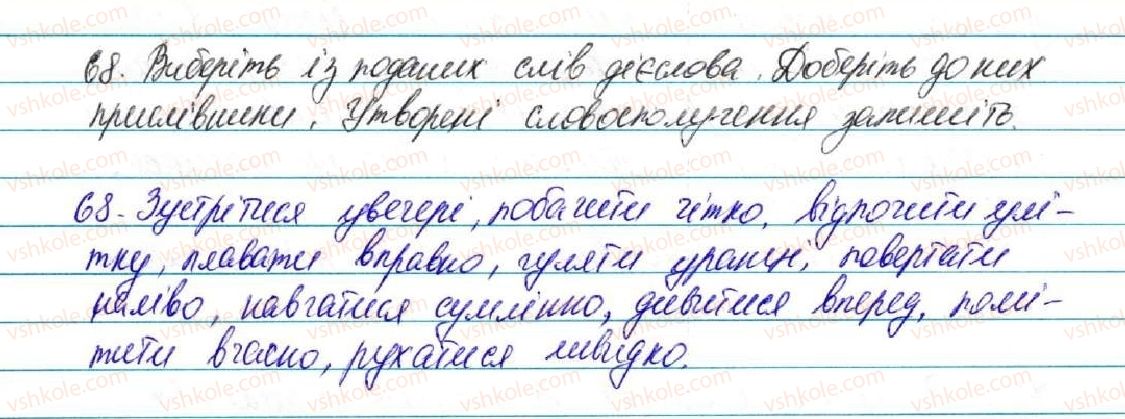 68. Виберіть із поданих слів дієслова. Доберіть до них
прислівники. Утворені словосполучення запишіть.
68. Зустрітися увечері, побачити чітко, відпочити улі-
тку, плавати вправно, гуляти уранці, повертати
наліво, навчатися сумлінно, дивитися вперед, помі-
тити вчасно, рухатися швидко.